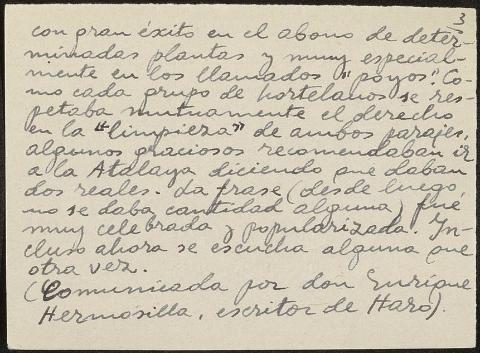 3
con gran éxito en el abono de deter-
minadas plantas y muy especial-
mente en los llamados "poyos". Co-
mo cada grupo de hortelanos se res-
petaba mutuamente el derecho
en la "limpieza" de ambos parajes,
algunos graciosos recomendaban ir
a la Atalaya diciendo que daban
dos reales. La frase (desde luego,
no se daba cantidad alguna) fué
muy celebrada y popularizada. In-
cluso ahora se escucha alguna que
otra vez.
(Comunicada por don Enrique
Hermosilla, escritor de Haro).